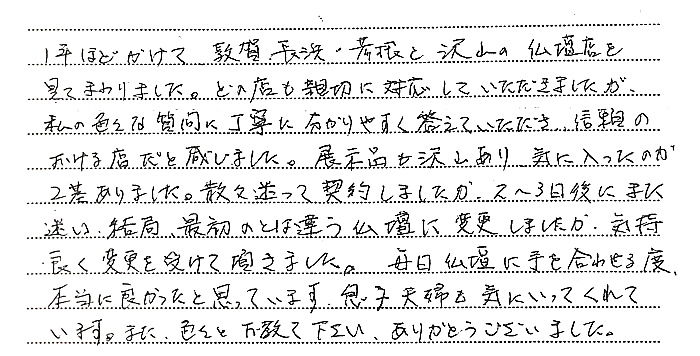 1年ほどかけて 敦賀、長浜・彦根と 沢山の 仏壇店を
見てまわりました。どの店も親切に対応していただきましたが、
私の色々な質問に丁寧に分かりやすく答えていただき、信頼の
おける店だと感じました。展示品も沢山あり 気に入ったのが
2基ありました。散々迷って契約しましたが、2〜3日後にまた
迷い、結局、最初のとは違う仏壇に変更しましたが、気持
良く変更を受けて頂きました。 毎日仏壇に手を合わせる度、
本当に良かったと思っています。息子夫婦も気にいってくれて
います。また、色々とお教え下さい、ありがとうございました。